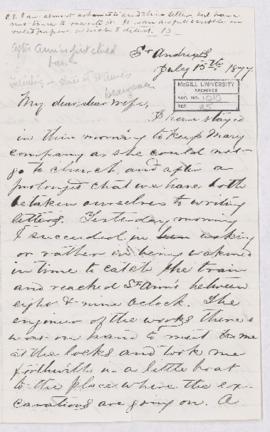 P.S. I am almost ashamed to send this letter, but have
not time to rewrite it.
St Andrews
July 15th 1877
McGILL UNIVERSITY
ARCHIVES
ACC. NO.
REF.
My dear, dear wife,
I have stayed
in this morning to keep Mary
company as she could not
go to church, and after a
prolonged chat we have both
betaken ourselves to writing
letters. Yesterday morning
I succeeded in waking
or rather in being wakened
in time to catch the train
and reached St Anns between
eight & nine oclock. The
engineer of the works there
was on hand to meet me
at the locks and took me
forthwith in a little boat
to the place where the ex-
cavations are going on. A